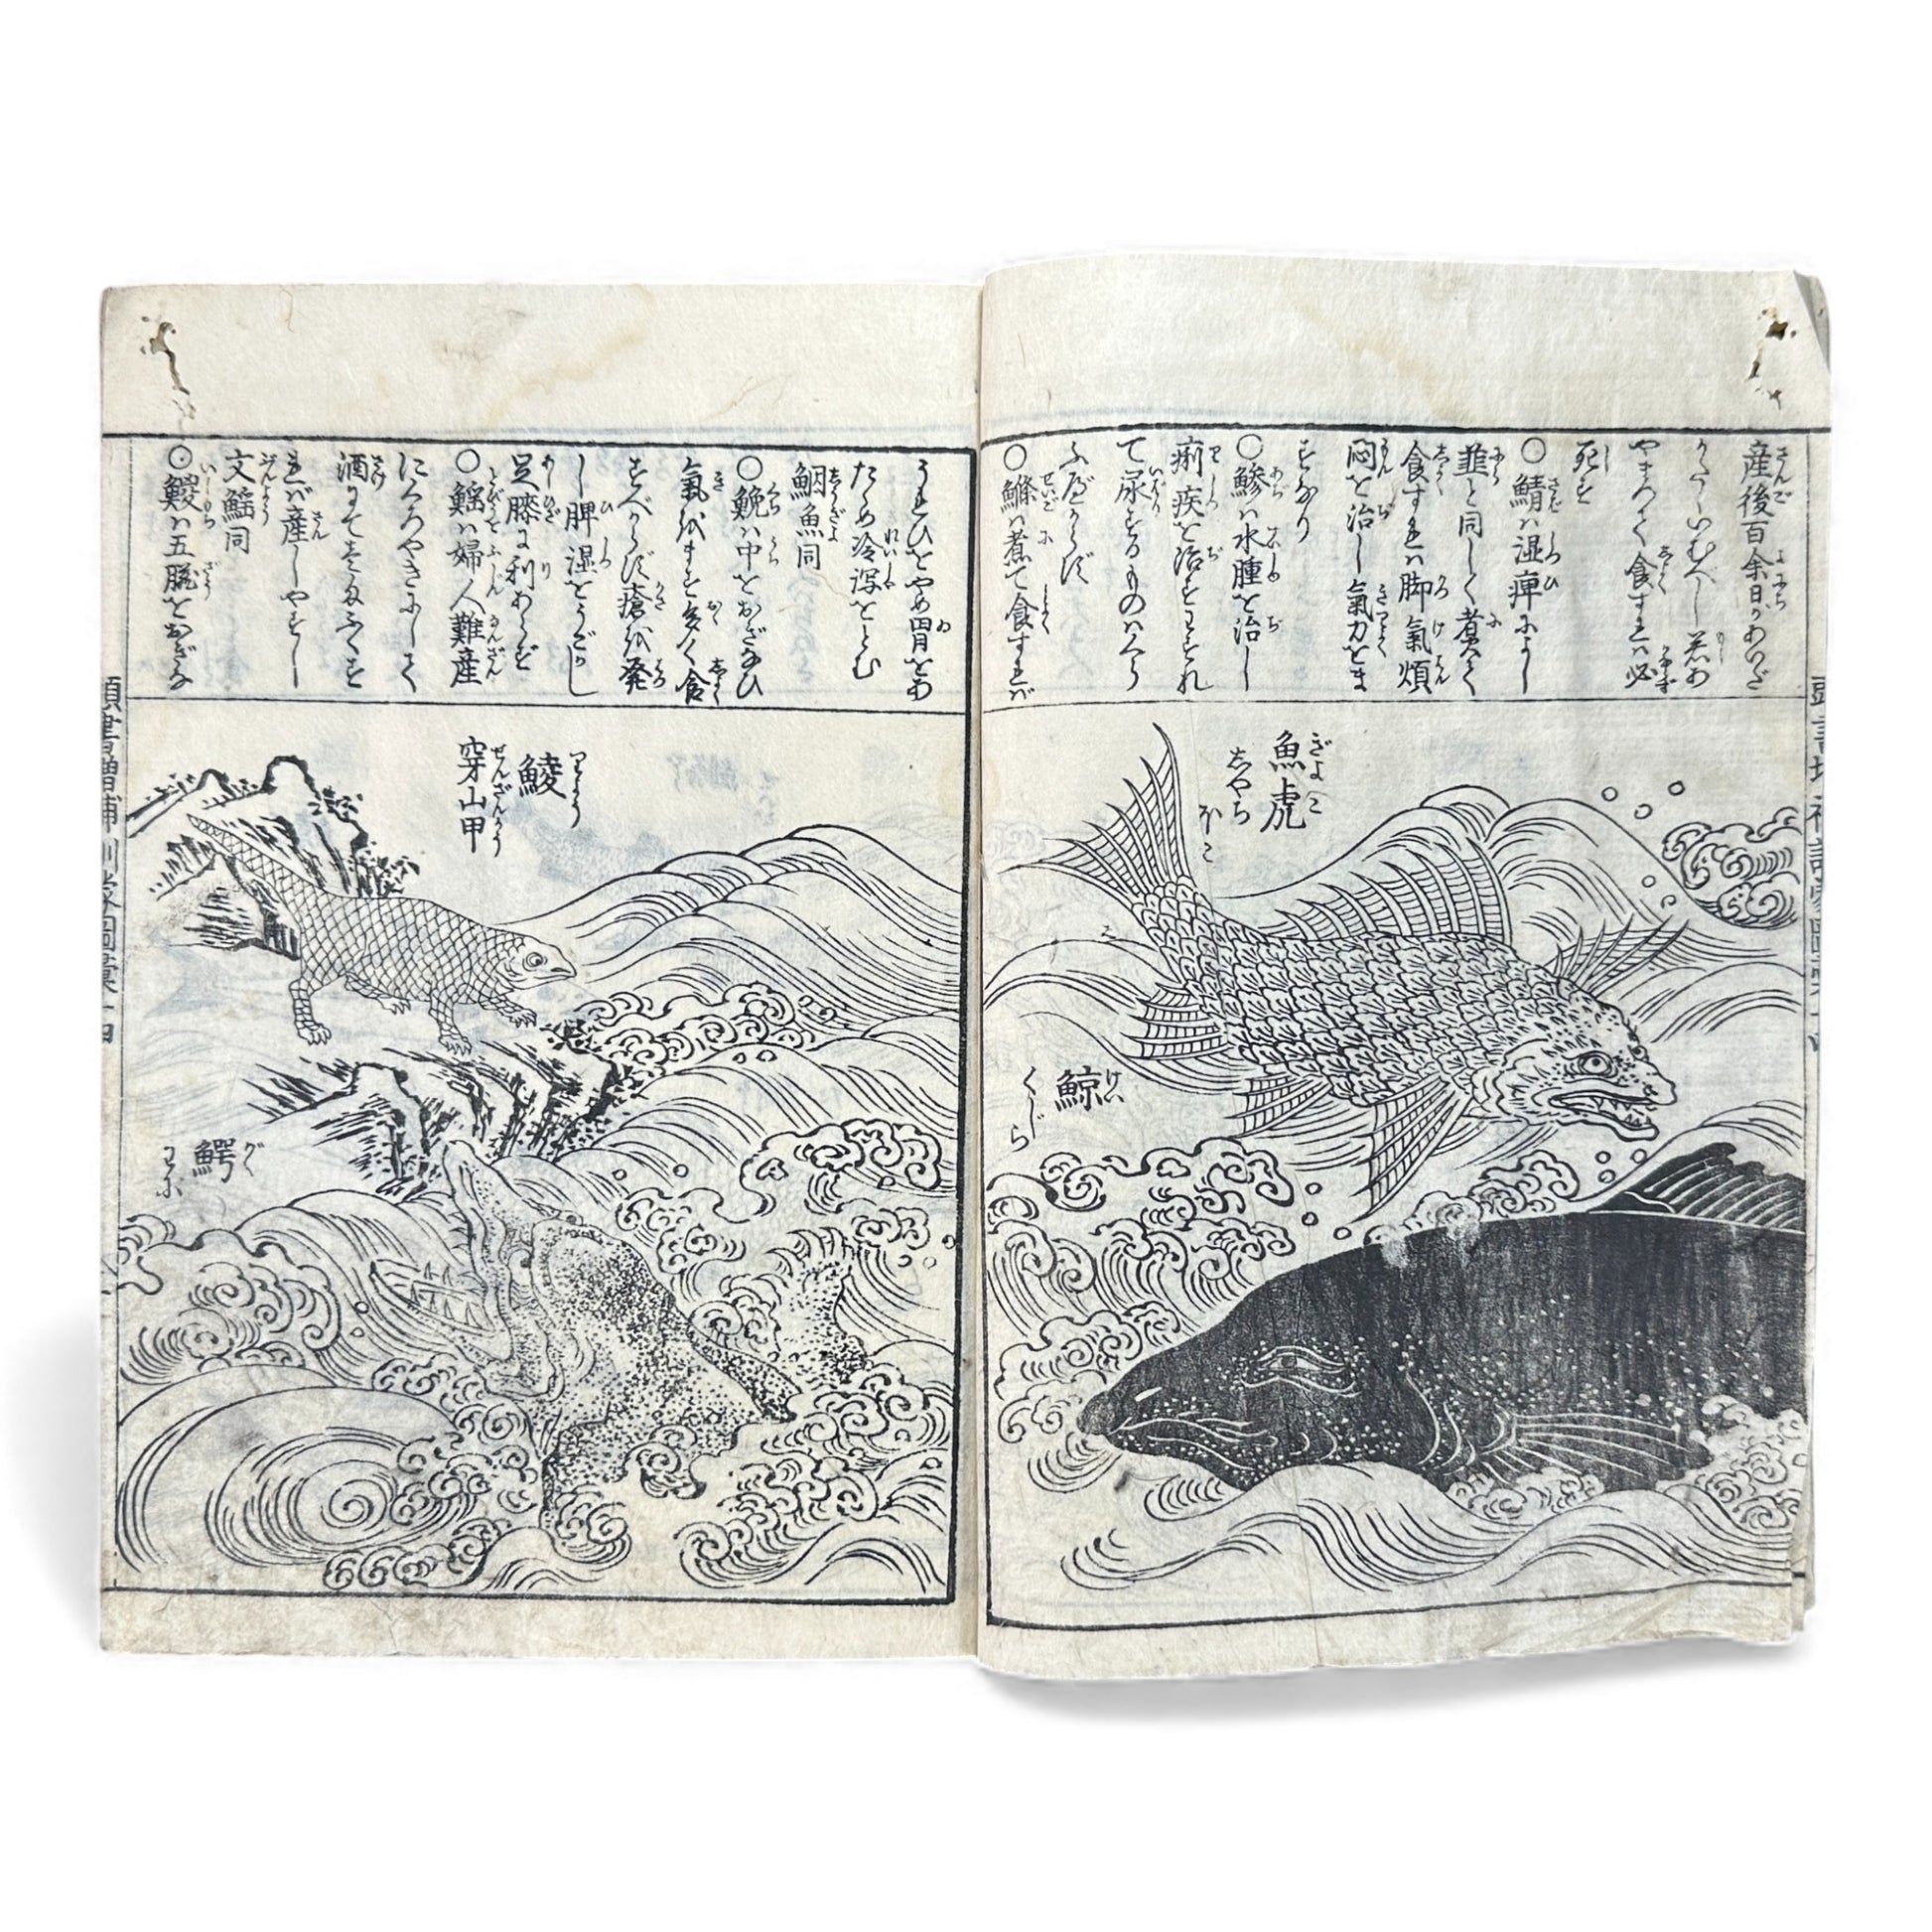 産後百余日があいだ
かたくいむべし若あ
やまつて食すれハ必
死す
○鯖ハ湿痺によし
韮と同しく煮て
食すれハ脚氣煩
悶を治し氣力をま
すなり
○鰺ハ水腫を治し
痢疾を治すわすれ
て尿するものハくら
ふべからず
○鰷ハ煮て食すれバ
うれひをやめ胃をあ
たゝめ冷瀉をとむ
鮂魚同
○鮸ハ中をおぎなひ
氣をます多く食
すべからず瘡を発
し脾湿をうごかし
足膝に利あらず
○鰩ハ婦人難産
にくろやきにして
酒にてもちふべし
れバ産しやすし
文鰩同
○鯼ハ五臓をおぎな
魚虎
ぎよこ
しやちほこ
鯨
けい
くじら
鯪
りよう
穿山甲
せんざんかう
鰐
がく
わに
頭書増補訓蒙圖彙十四